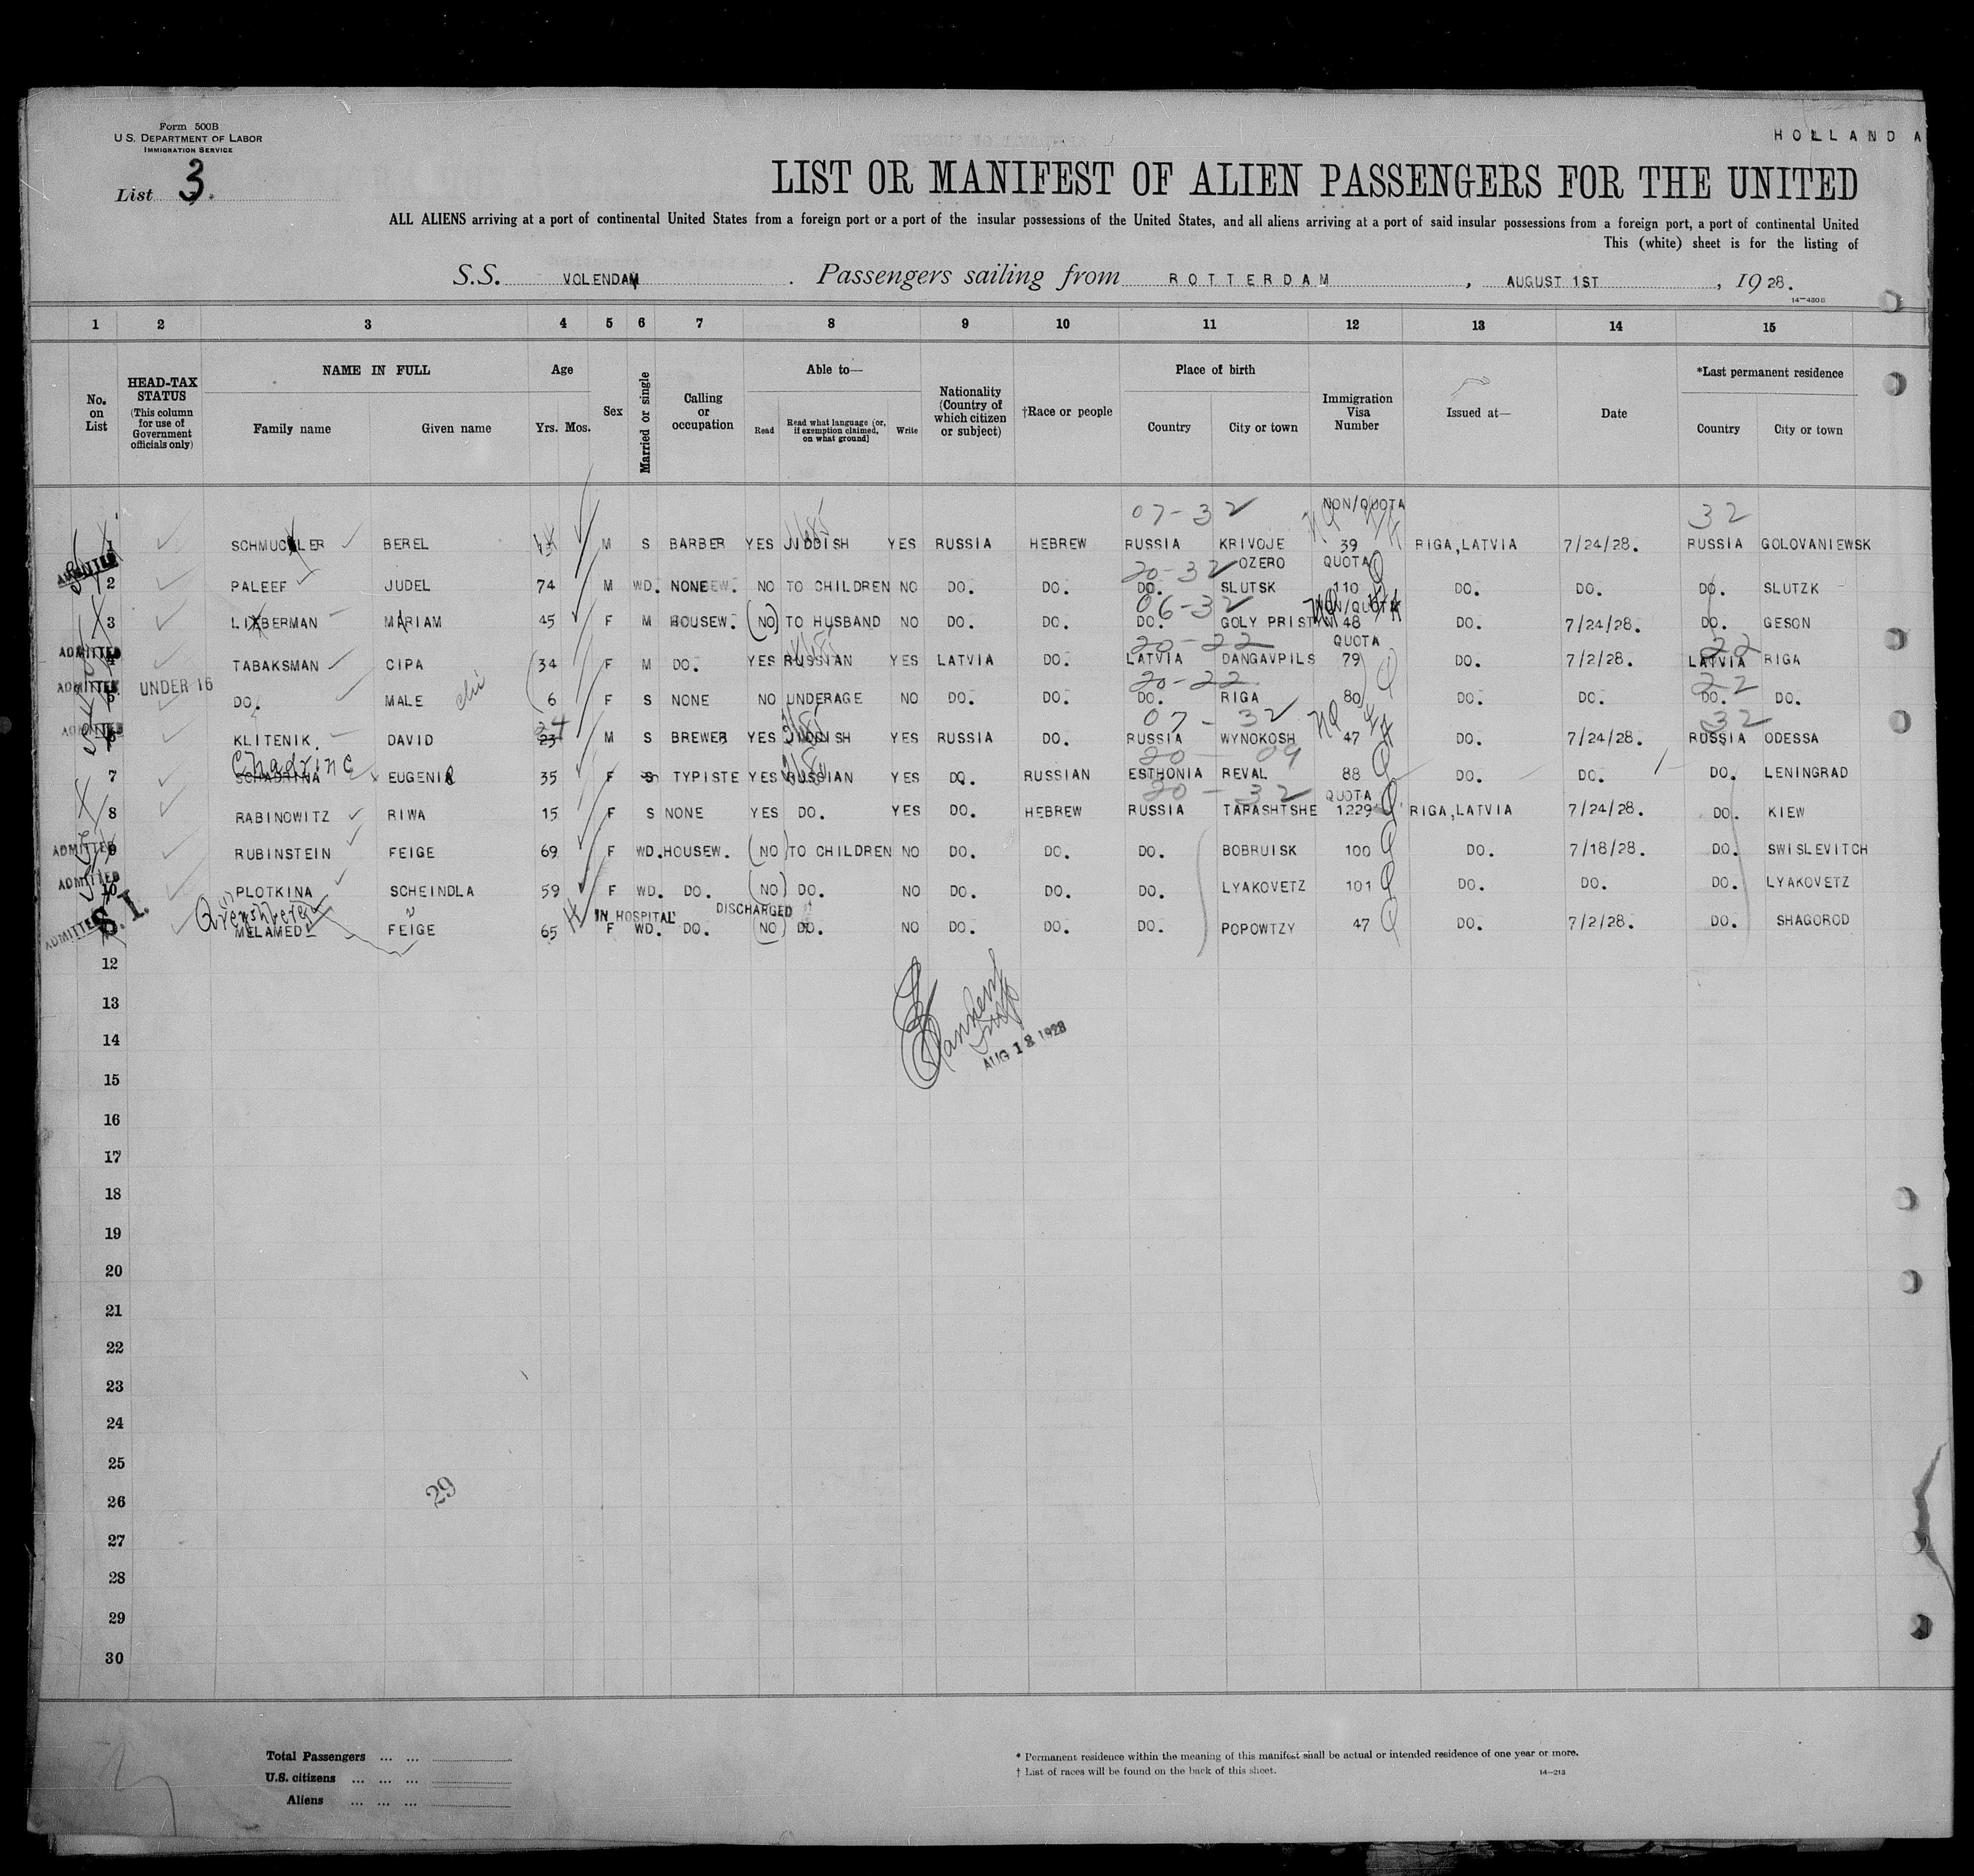 Form 500B
U.S. DEPARTMENT OF LABOR
IMMIGRATION SERVICE
HOLLAND A
List 3.
LIST OR MANIFEST OF ALIEN PASSENGERS FOR THE UNITED
ALL ALIENS arriving at a port of continental United States from a foreign port or a port of the insular possessions of the United States, and all aliens arriving at a port of said insular possessions from a foreign port, a port of continental United
This (white) sheet is for the listing of
S.S. VOLENDAM. Passengers sailing from ROTTERDAM, AUGUST 1ST, 1928.
14—480B
1 2 3 4 5 6 7 8 9 10 11 12 13 14 15
No. on List
HEAD-TAX STATUS (This column for use of Government officials only)
NAME IN FULL
Family name Given name
Age
Yrs. Mos.
Sex
Married or single
Calling or occupation
Able to—
Read Read what language [or, if exemption claimed, on what ground] Write
Nationality (Country of which citizen or subject)
†Race or people
Place of birth
Country City or town
Immigration Visa Number
Issued at—
Date
*Last permanent residence
Country City or town
07-32 NON/QUOTA 32
1 SCHMUCKLER BEREL M S BARBER YES JIDDISH YES RUSSIA HEBREW RUSSIA KRIVOJE 39 RIGA, LATVIA 7/24/28. RUSSIA GOLOVANIEWSK
ADMITTED 20-32 OZERO QUOTA
2 PALEEF JUDEL 74 M WD. NONE NO TO CHILDREN NO DO. DO. DO. SLUTSK 110 DO. DO. DO. SLUTZK
06-32 NON/QUOTA
3 LIEBERMAN MARIAM 45 F M HOUSEW. (NO) TO HUSBAND NO DO. DO. DO. GOLY PRISTYN 48 DO. 7/24/28. DO. GESON
ADMITTED 20-22 QUOTA 22
4 TABAKSMAN CIPA 34 F M DO. YES RUSSIAN YES LATVIA DO. LATVIA DANGAVPILS 79 DO. 7/2/28. LATVIA RIGA
ADMITTED UNDER 16 20-22 22
5 DO. MALE 6 F S NONE NO UNDERAGE NO DO. DO. DO. RIGA 80 DO. DO. DO. DO.
ADMITTED 24 07-32 32
6 KLITENIK. DAVID 23 M S BREWER YES JIDDISH YES RUSSIA DO. RUSSIA WYNOKOSH 47 DO. 7/24/28. RUSSIA ODESSA
Chadrine 20-09
7 SCHADRINA EUGENIE 35 F S TYPISTE YES RUSSIAN YES DO. RUSSIAN ESTHONIA REVAL 88 DO. DO. DO. LENINGRAD
20-32 QUOTA
8 RABINOWITZ RIWA 15 F S NONE YES DO. YES DO. HEBREW RUSSIA TARASHTSHE 1229 RIGA, LATVIA 7/24/28. DO. KIEW
ADMITTED
9 RUBINSTEIN FEIGE 69 F WD. HOUSEW. (NO) TO CHILDREN NO DO. DO. DO. BOBRUISK 100 DO. 7/18/28. DO. SWISLEVITCH
ADMITTED
10 PLOTKINA SCHEINDLA 59 F WD. DO. (NO) DO. NO DO. DO. DO. LYAKOVETZ 101 DO. DO. DO. LYAKOVETZ
S.I. IN HOSPITAL DISCHARGED
ADMITTED MELAMED FEIGE 65 F WD. DO. (NO) DO. NO DO. DO. DO. POPOWTZY 47 DO. 7/2/28. DO. SHAGOROD
12
13
14
AUG 18 1928
15
16
17
18
19
20
21
22
23
24
25
26
29
27
28
29
30
Total Passengers ... ...
U.S. citizens ... ... ...
Aliens ... ... ...
* Permanent residence within the meaning of this manifest shall be actual or intended residence of one year or more.
† List of races will be found on the back of this sheet.
14—213